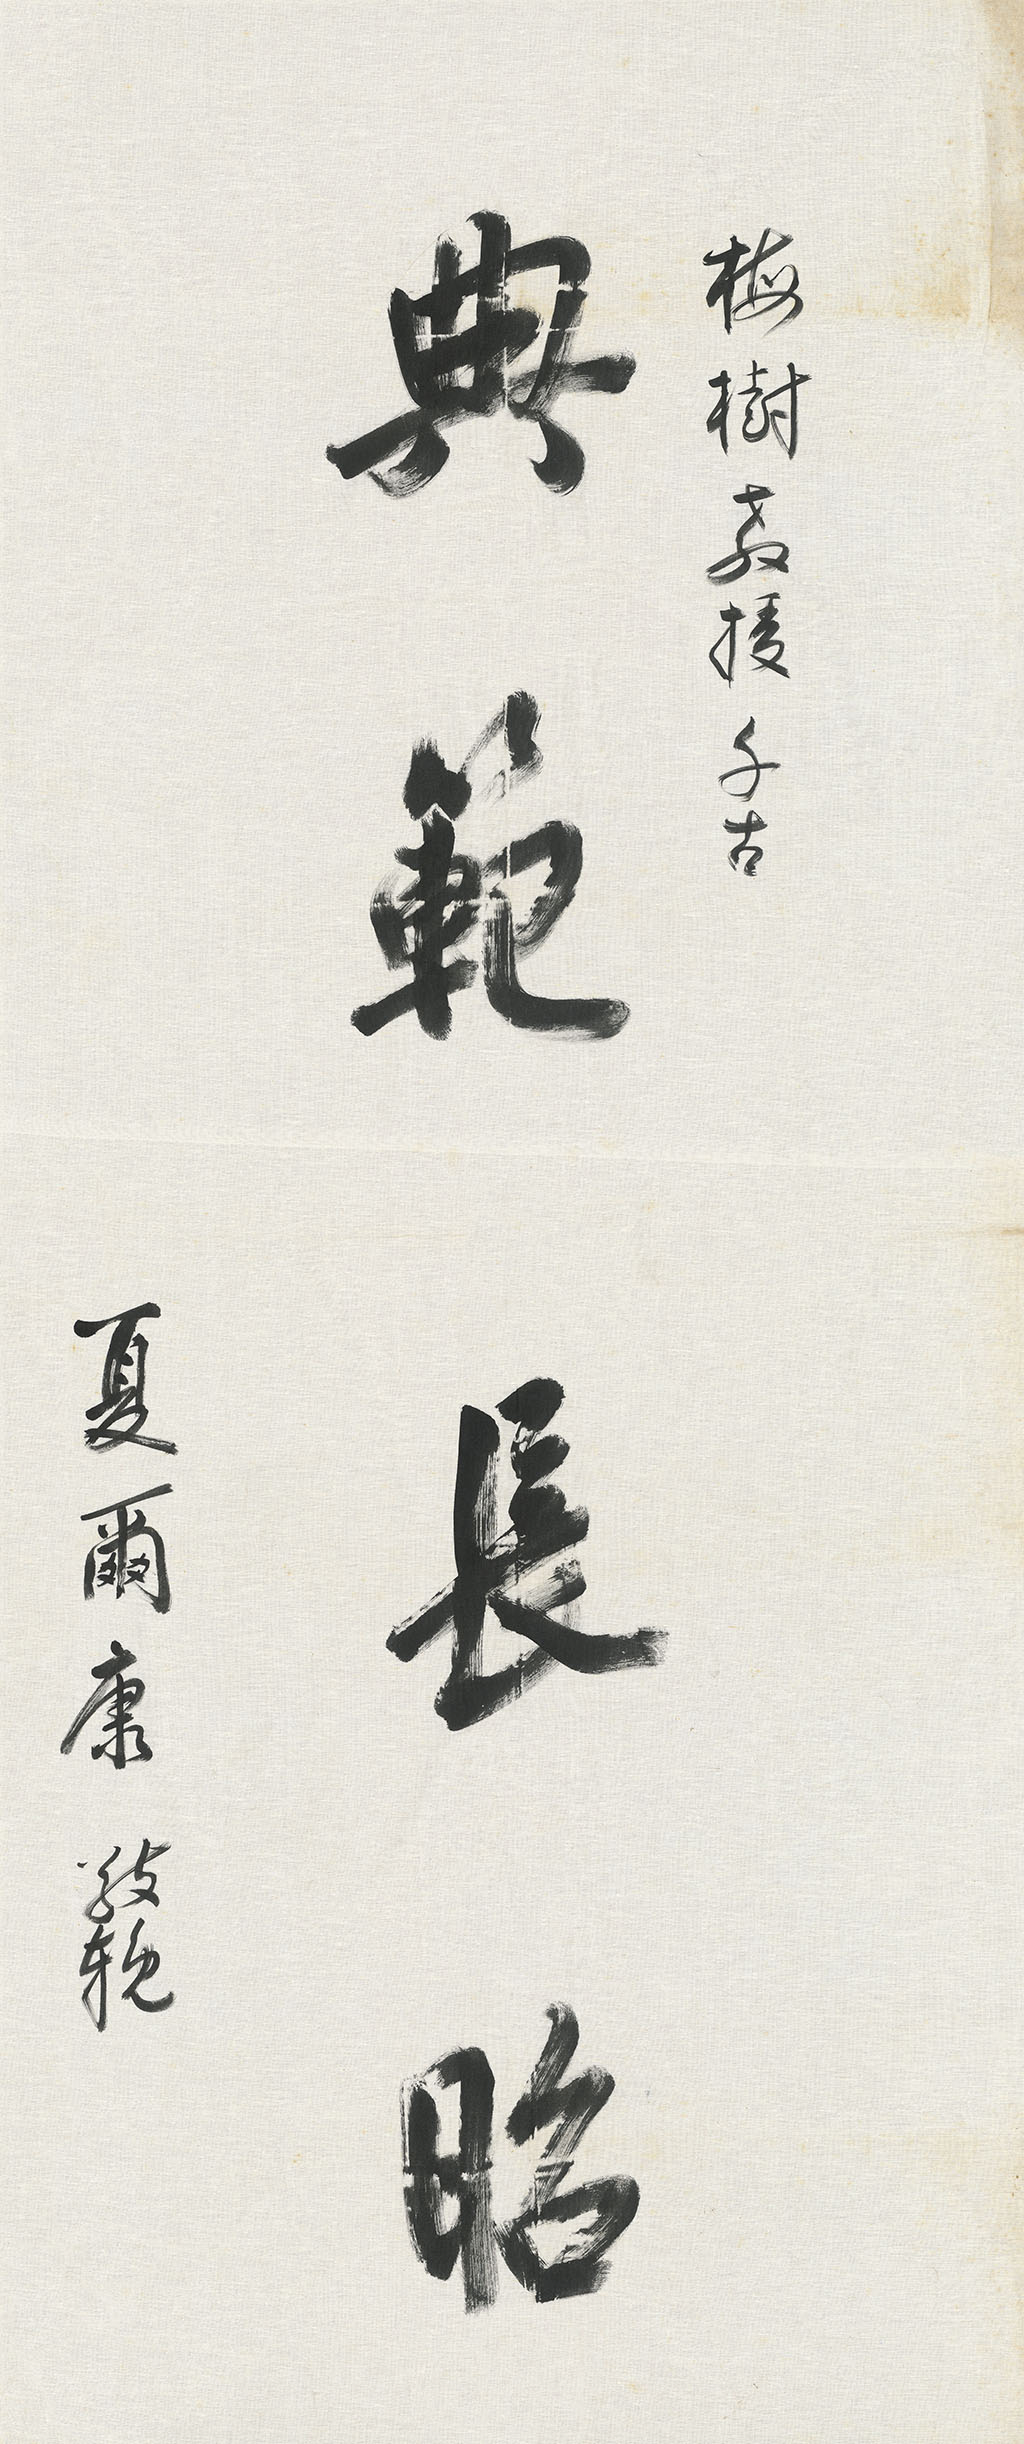 梅樹教授千古
典範長昭
夏爾康敬輓